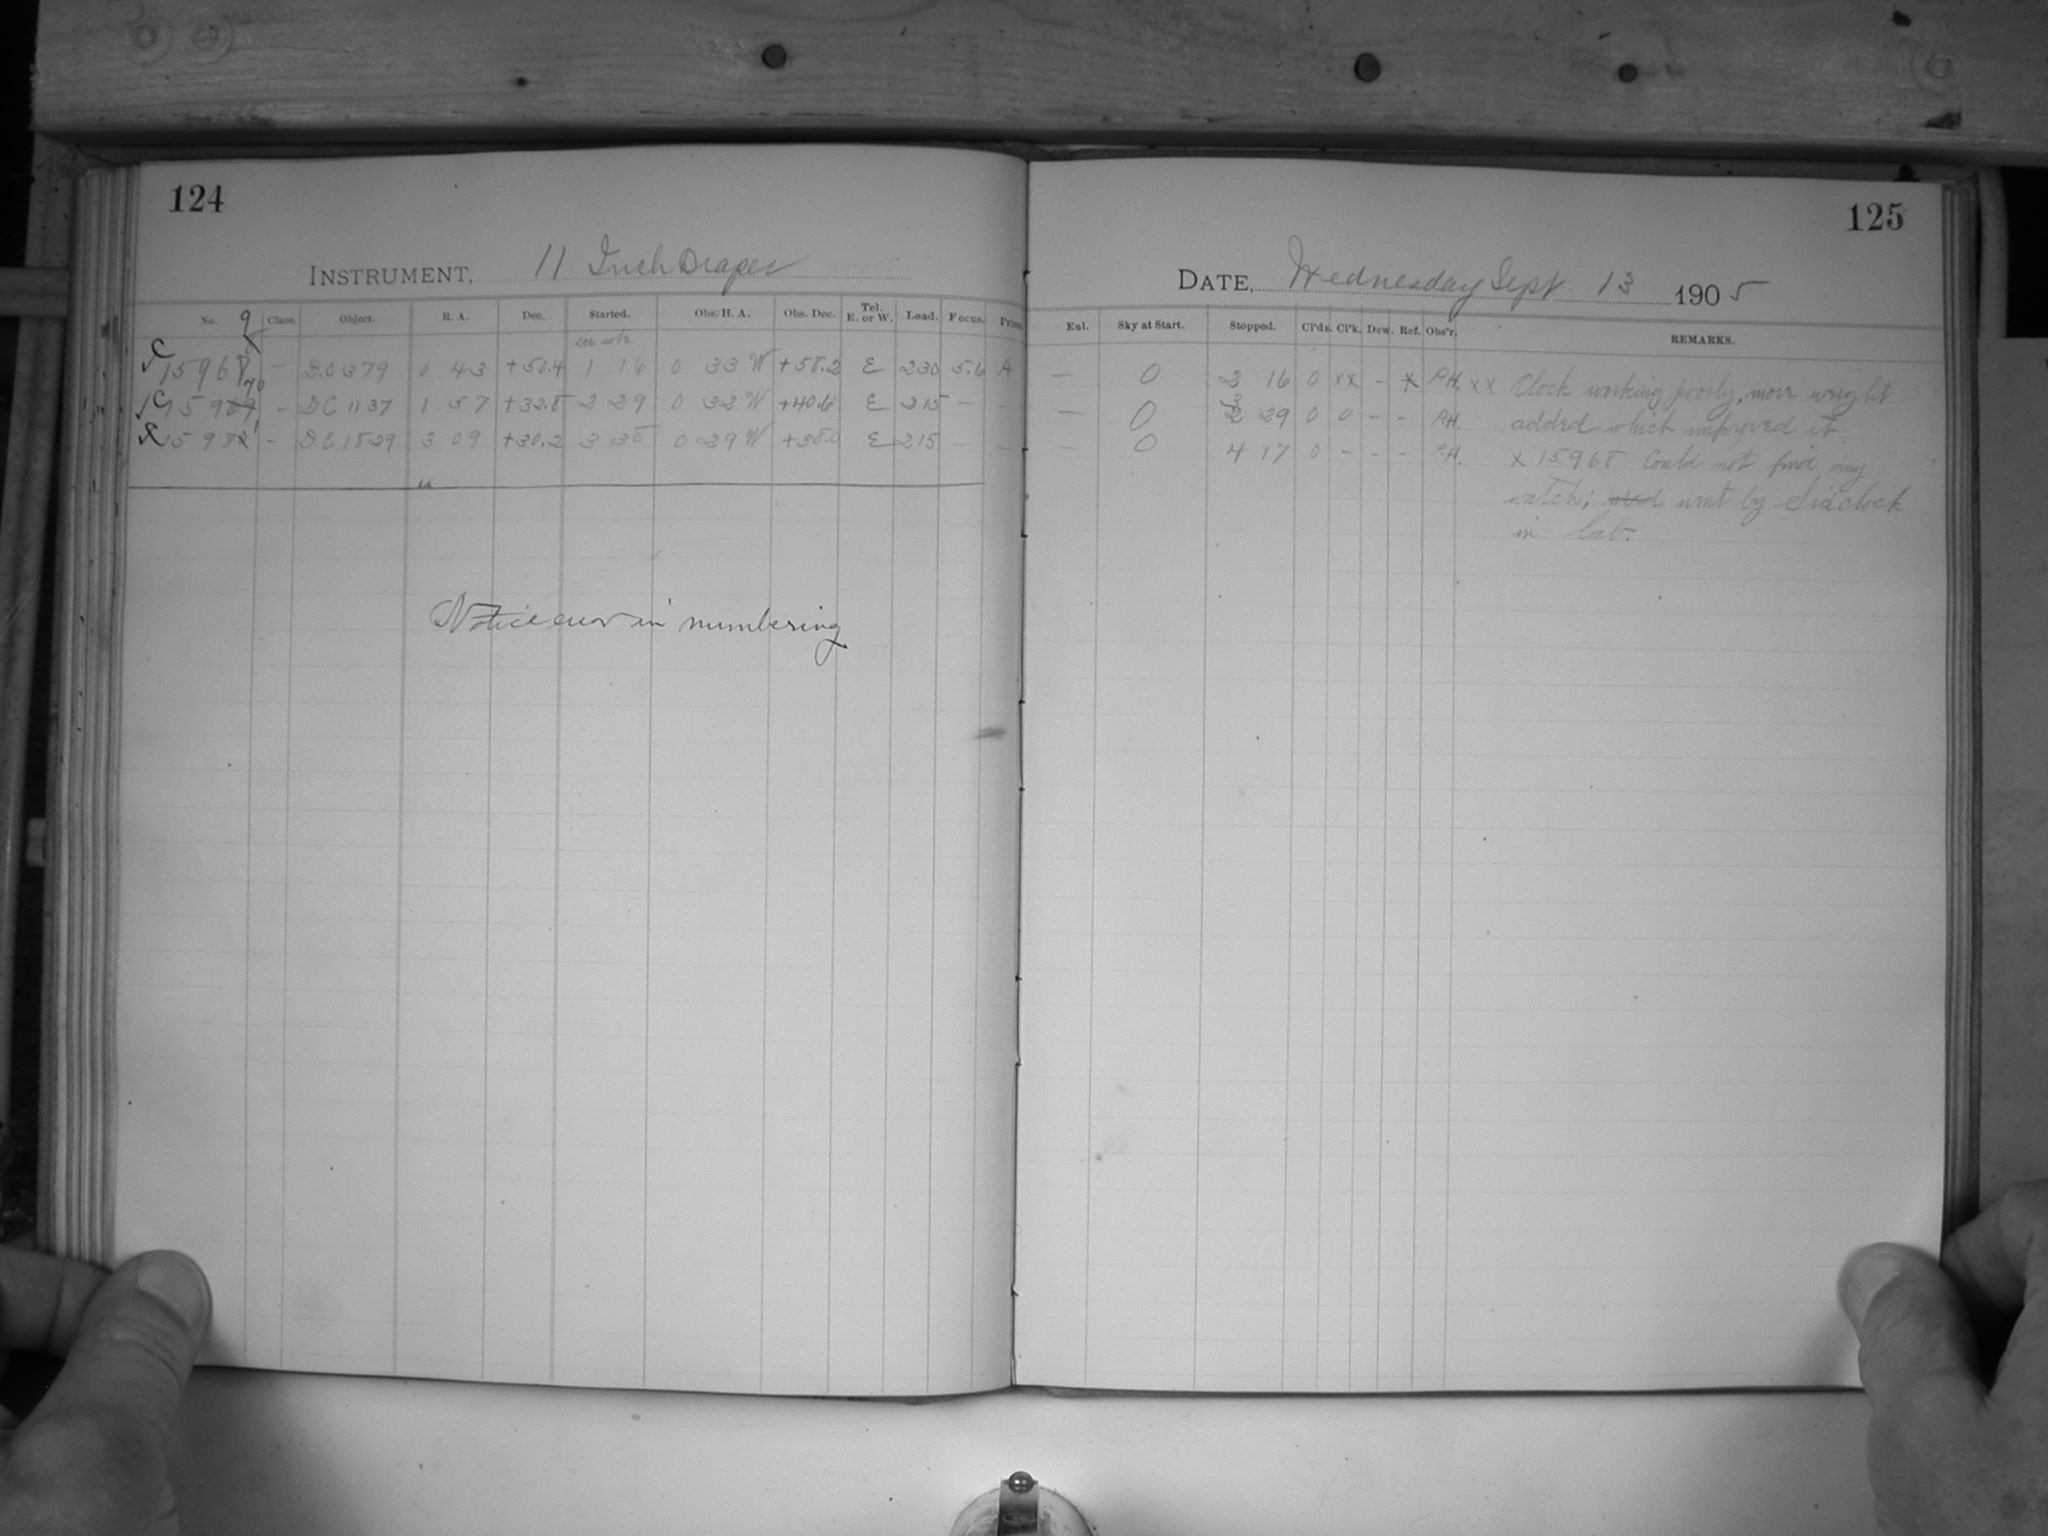 124
INSTRUMENT, 11 Inch Draper
No. Class. Object. R. A. Dec. Started. Obs. H. A. Obs. Dec. Tel. E. or W. Load. Focus. Prism
9
C 15968 – D.C 379 0 43 +50.4 1 16 0 33 W +58.2 E 230 5.6 A
70
C 15969 – D.C 1137 1 57 +32.8 2 29 0 32 W +40.6 E 215 – –
1
C 15972 – D.C 1529 3 09 +30.2 3 38 0 29 W +38.0 E 215 – –
Notice error in numbering
125
DATE, Wednesday Sept 13 1905
Enl. Sky at Start. Stopped. Cl'ds. Cl'k. Dew. Ref. Obs'r. REMARKS.
– 0 2 16 0 xx – x P.H. xx Clock working poorly, more weight
– 0 3 29 0 0 – – P.H. added which improved it
– 0 4 17 0 – – – P.H. x 15968 Could not find my
watch; used went by Sid clock
in Lab.